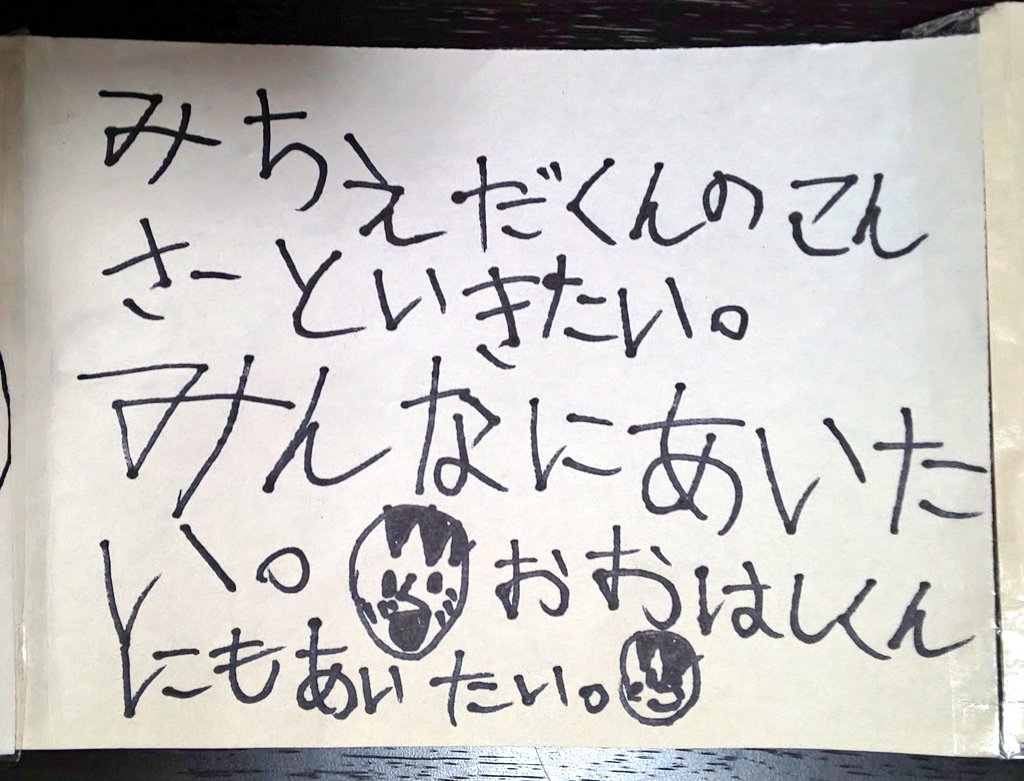 みちえだくんのこん
さーといきたい。
みんなにあいた
い。おおはしくん
にもあいたい。